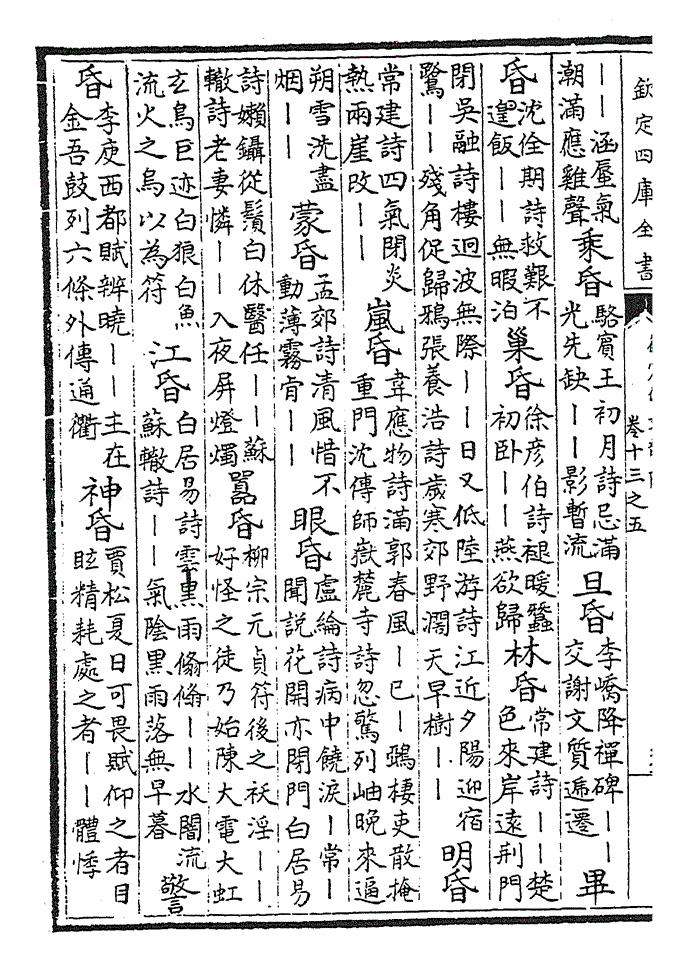 欽定四庫全書
卷十三之五
——涵蜃氣
潮滿應雞聲
乘昏
駱賓王初月詩忌滿
光先缺——影暫流
旦昏
李嶠降禪碑——
交謝文質遞遷
畢
昏
沈佺期詩救艱不
遑飯——無暇泊
巢昏
徐彦伯詩褪暖蠶
初卧——燕欲歸
林昏
常建詩——楚
色來岸遠荆門
閉吳融詩樓迥波無際——日又低陸游詩江近夕陽迎宿
鷺——殘角促歸鴉張養浩詩歲寒郊野濶天早樹——
明昏
常建詩四氣閉炎
熱兩崖改——
嵐昏
韋應物詩滿郭春風—已—鵶棲吏散掩
重門沈傳師嶽麓寺詩忽驚列岫晚來逼
朔雪洗盡
烟——
蒙昏
孟郊詩清風惜不
動薄霧肯——
眼昏
盧綸詩病中饒淚—常—
聞説花開亦閉門白居易
詩嬾鑷從鬚白休醫任——蘇
轍詩老妻憐——入夜屏燈燭
囂昏
柳宗元貞符後之祅淫——
好怪之徒乃始陳大電大虹
玄鳥巨迹白狼白魚
流火之烏以為符
江昏
白居易詩雲黒雨翛翛——水闇流
蘇轍詩——氣陰黒雨落無早暮
警
昏
李庾西都賦辨曉——主在
金吾鼓列六條外傳通衢
神昏
賈松夏日可畏賦仰之者目
眩精耗處之者——體悸